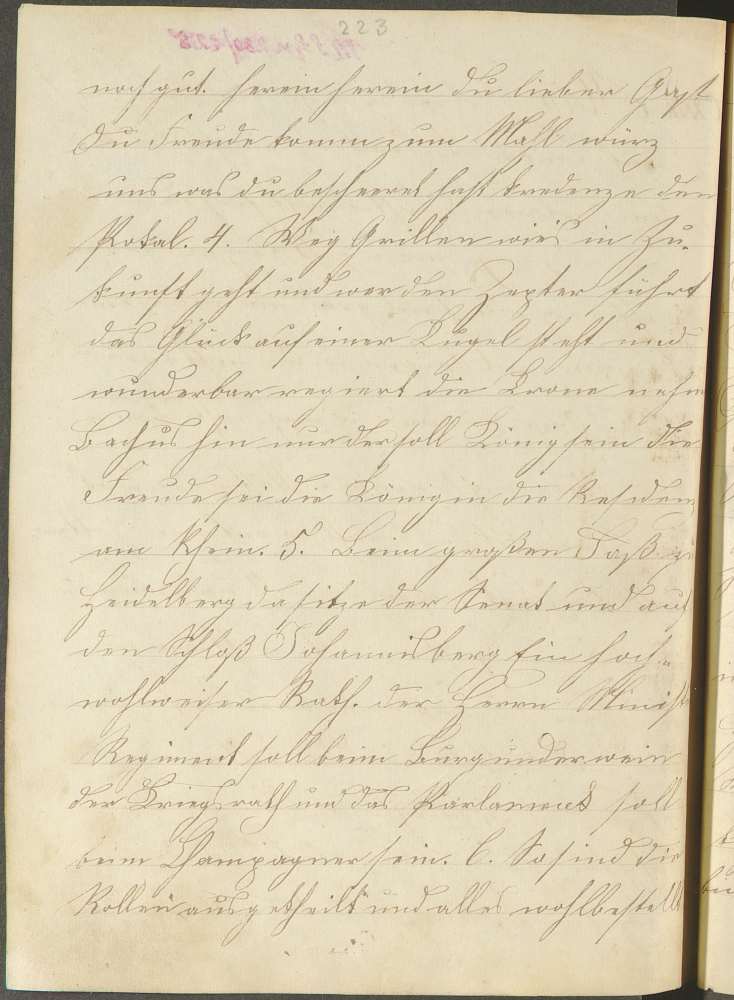 223
noch gut. herein herein du lieber Gast
Du Freude komm zum Mahl würz
uns was du bescheeret hast kredenze den
Pokal. 4. Weg Grillen wie's in Zu-
kunft geht und wer den Zepter führt
das Glück auf einer Kugel steht und
wunderbar regiert die Krone nehm
Bachus hin nur der soll König sein die
Freude sei die Königin die Residenz
am Rhein. 5. Beim großen Faß zu
Heidelberg da sitze der Senat und auf
den Schloß Johannisberg Ein hoch-
wohlweiser Rath. der Herrn Minist
Regiment soll beim Burgunderwein
der Kriegsrath und das Parlament soll
beim Champagner sein. 6. So sind die
Rollen ausgetheilt und alles wohlbestellt